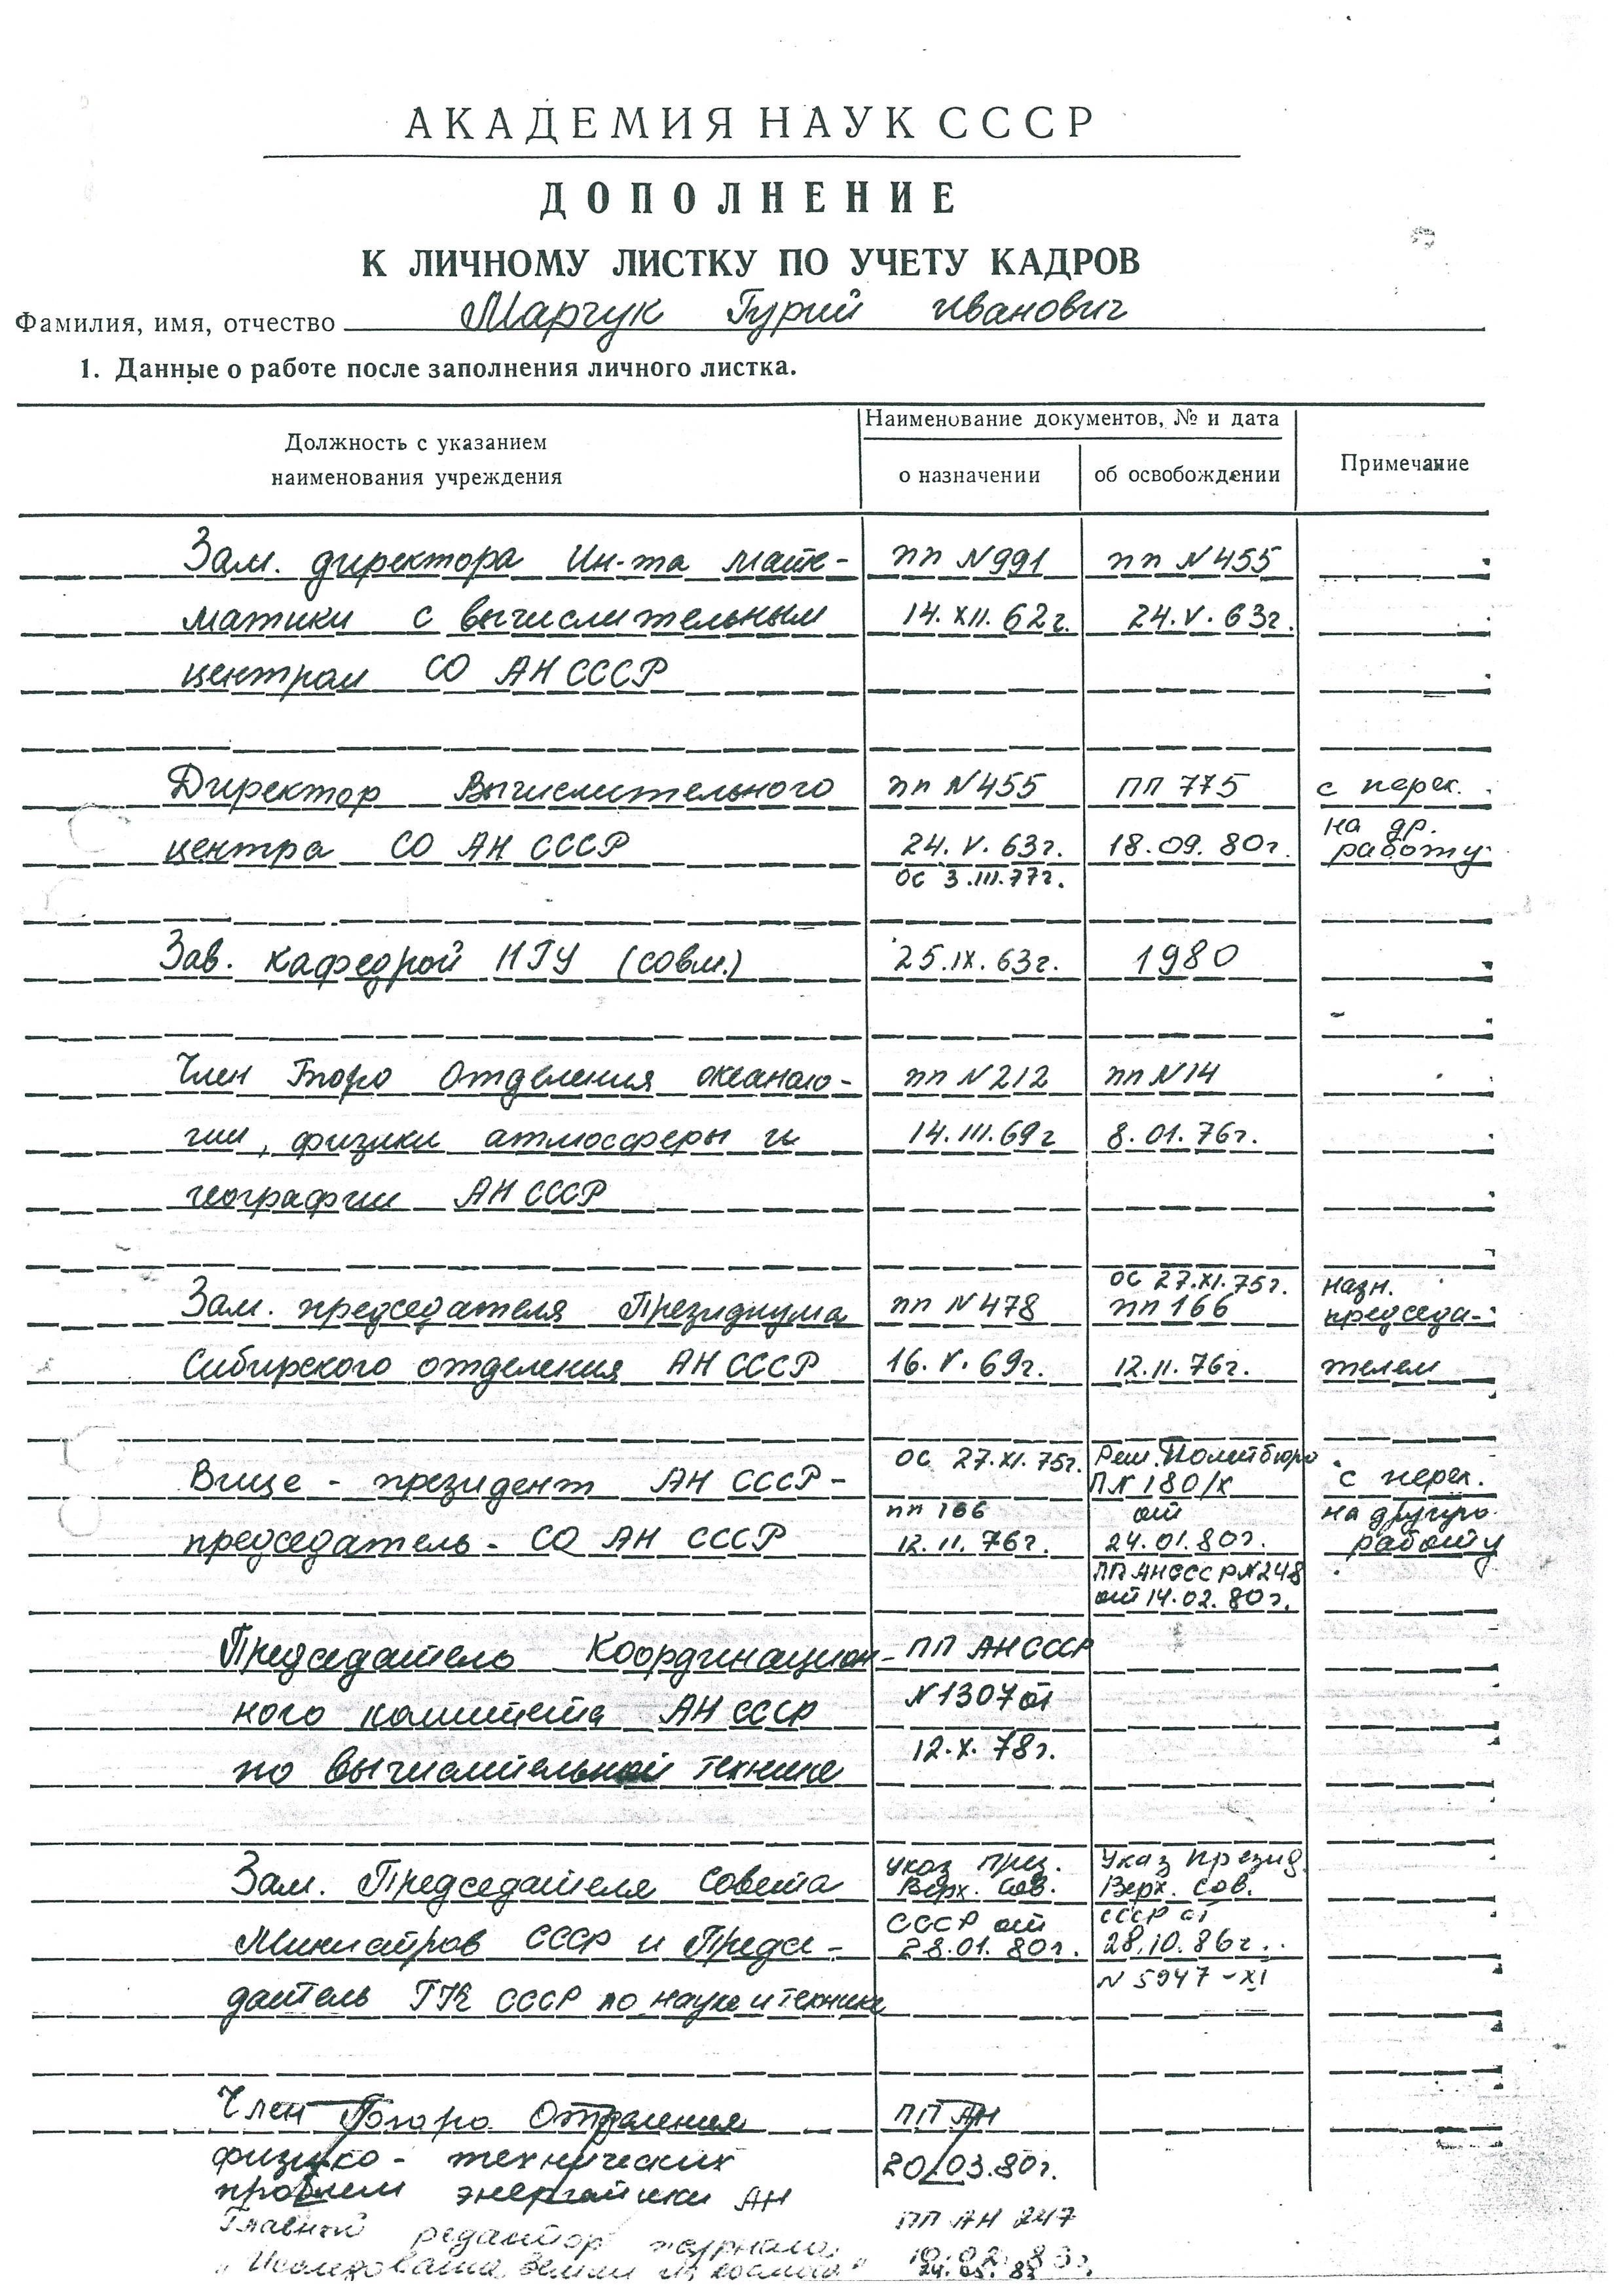 АКАДЕМИЯ НАУК СССР
ДОПОЛНЕНИЕ
К ЛИЧНОМУ ЛИСТКУ ПО УЧЕТУ КАДРОВ
Фамилия, имя, отчество Марчук Гурий Иванович
1. Данные о работе после заполнения личного листка.
Должность с указанием
наименования учреждения
Наименование документов, № и дата
о назначении
об освобождении
Примечание
Зам. директора Ин-та мате- пп N 991 пп N 455
матики с вычислительным 14.XII.62г. 24.V.63г.
центром СО АН СССР
Директор Вычислительного пп N 455 ПП 775 с перех.
центра СО АН СССР 24.V.63г. 18.09.80г. на др.
работу
ОС 3.III.77г.
Зав. кафедрой НГУ (совм.) 25.IX.63г. 1980
Член Бюро Отделения океаноло- пп N 212 пп N 14
гии, физики атмосферы и 14.III.69г 8.01.76г.
географии АН СССР
ОС 27.XI.75г. назн.
Зам. председателя Президиума пп N 478 пп 166 председа-
Сибирского отделения АН СССР 16.V.69г. 12.II.76г. телем
ОС 27.XI.75г. Реш. Политбюро
Вице-президент АН СССР - ПN 180/X с перех.
пп 166 от на другую
председатель - СО АН СССР 12.II.76г. 24.01.80г. работу
ПП АН СССР N 248
от 14.02.80г.
Председатель Координацион- ПП АН СССР
ного комитета АН СССР N 1307 от
по вычислительной технике 12.X.78г.
Указ през. Указ презид.
Зам. Председателя Совета Верх. Сов. Верх. Сов.
СССР от СССР от
Министров СССР и Предсе- 28.01.80г. 28.10.86г.
N 5947-XI
датель ГК СССР по науке и технике
Член Бюро Отделения ПП АН
физико-технических 20.03.80г.
проблем энергетики АН
Главный редактор журнала ПП АН 247
"Исследование Земли из космоса"